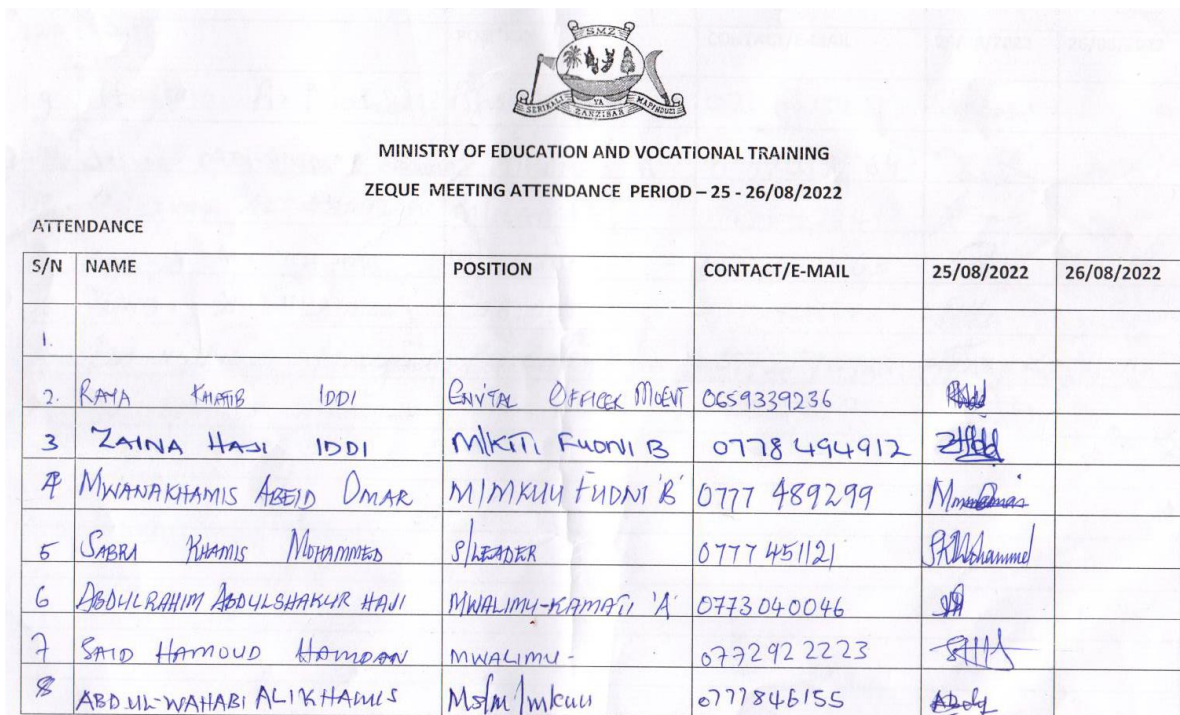 SMZ
SERIKALI YA MAPINDUZI
ZANZIBAR
MINISTRY OF EDUCATION AND VOCATIONAL TRAINING
ZEQUE MEETING ATTENDANCE PERIOD – 25 - 26/08/2022
ATTENDANCE
S/N NAME POSITION CONTACT/E-MAIL 25/08/2022 26/08/2022
1.
2. RAYA KHATIB IDDI ENVTAL OFFICER MOEVT 0659339236
3 ZAINA HAJI IDDI M/KITI FUONI B 0778 494912
4 MWANAKHAMIS ABEID OMAR M/MKUU FUONI 'B' 0777 489299
5 SABRA KHAMIS MOHAMMED S/LEADER 0777 451121 SKMohammed
6 ABDULRAHIM ABDULSHAKUR HAJI MWALIMU-KAMATI 'A' 0773040046
7 SAID HAMOUD HAMDAN MWALIMU- 0772922223
8 ABDUL-WAHABI ALI KHAMIS Ms/m/mkuu 0777846155